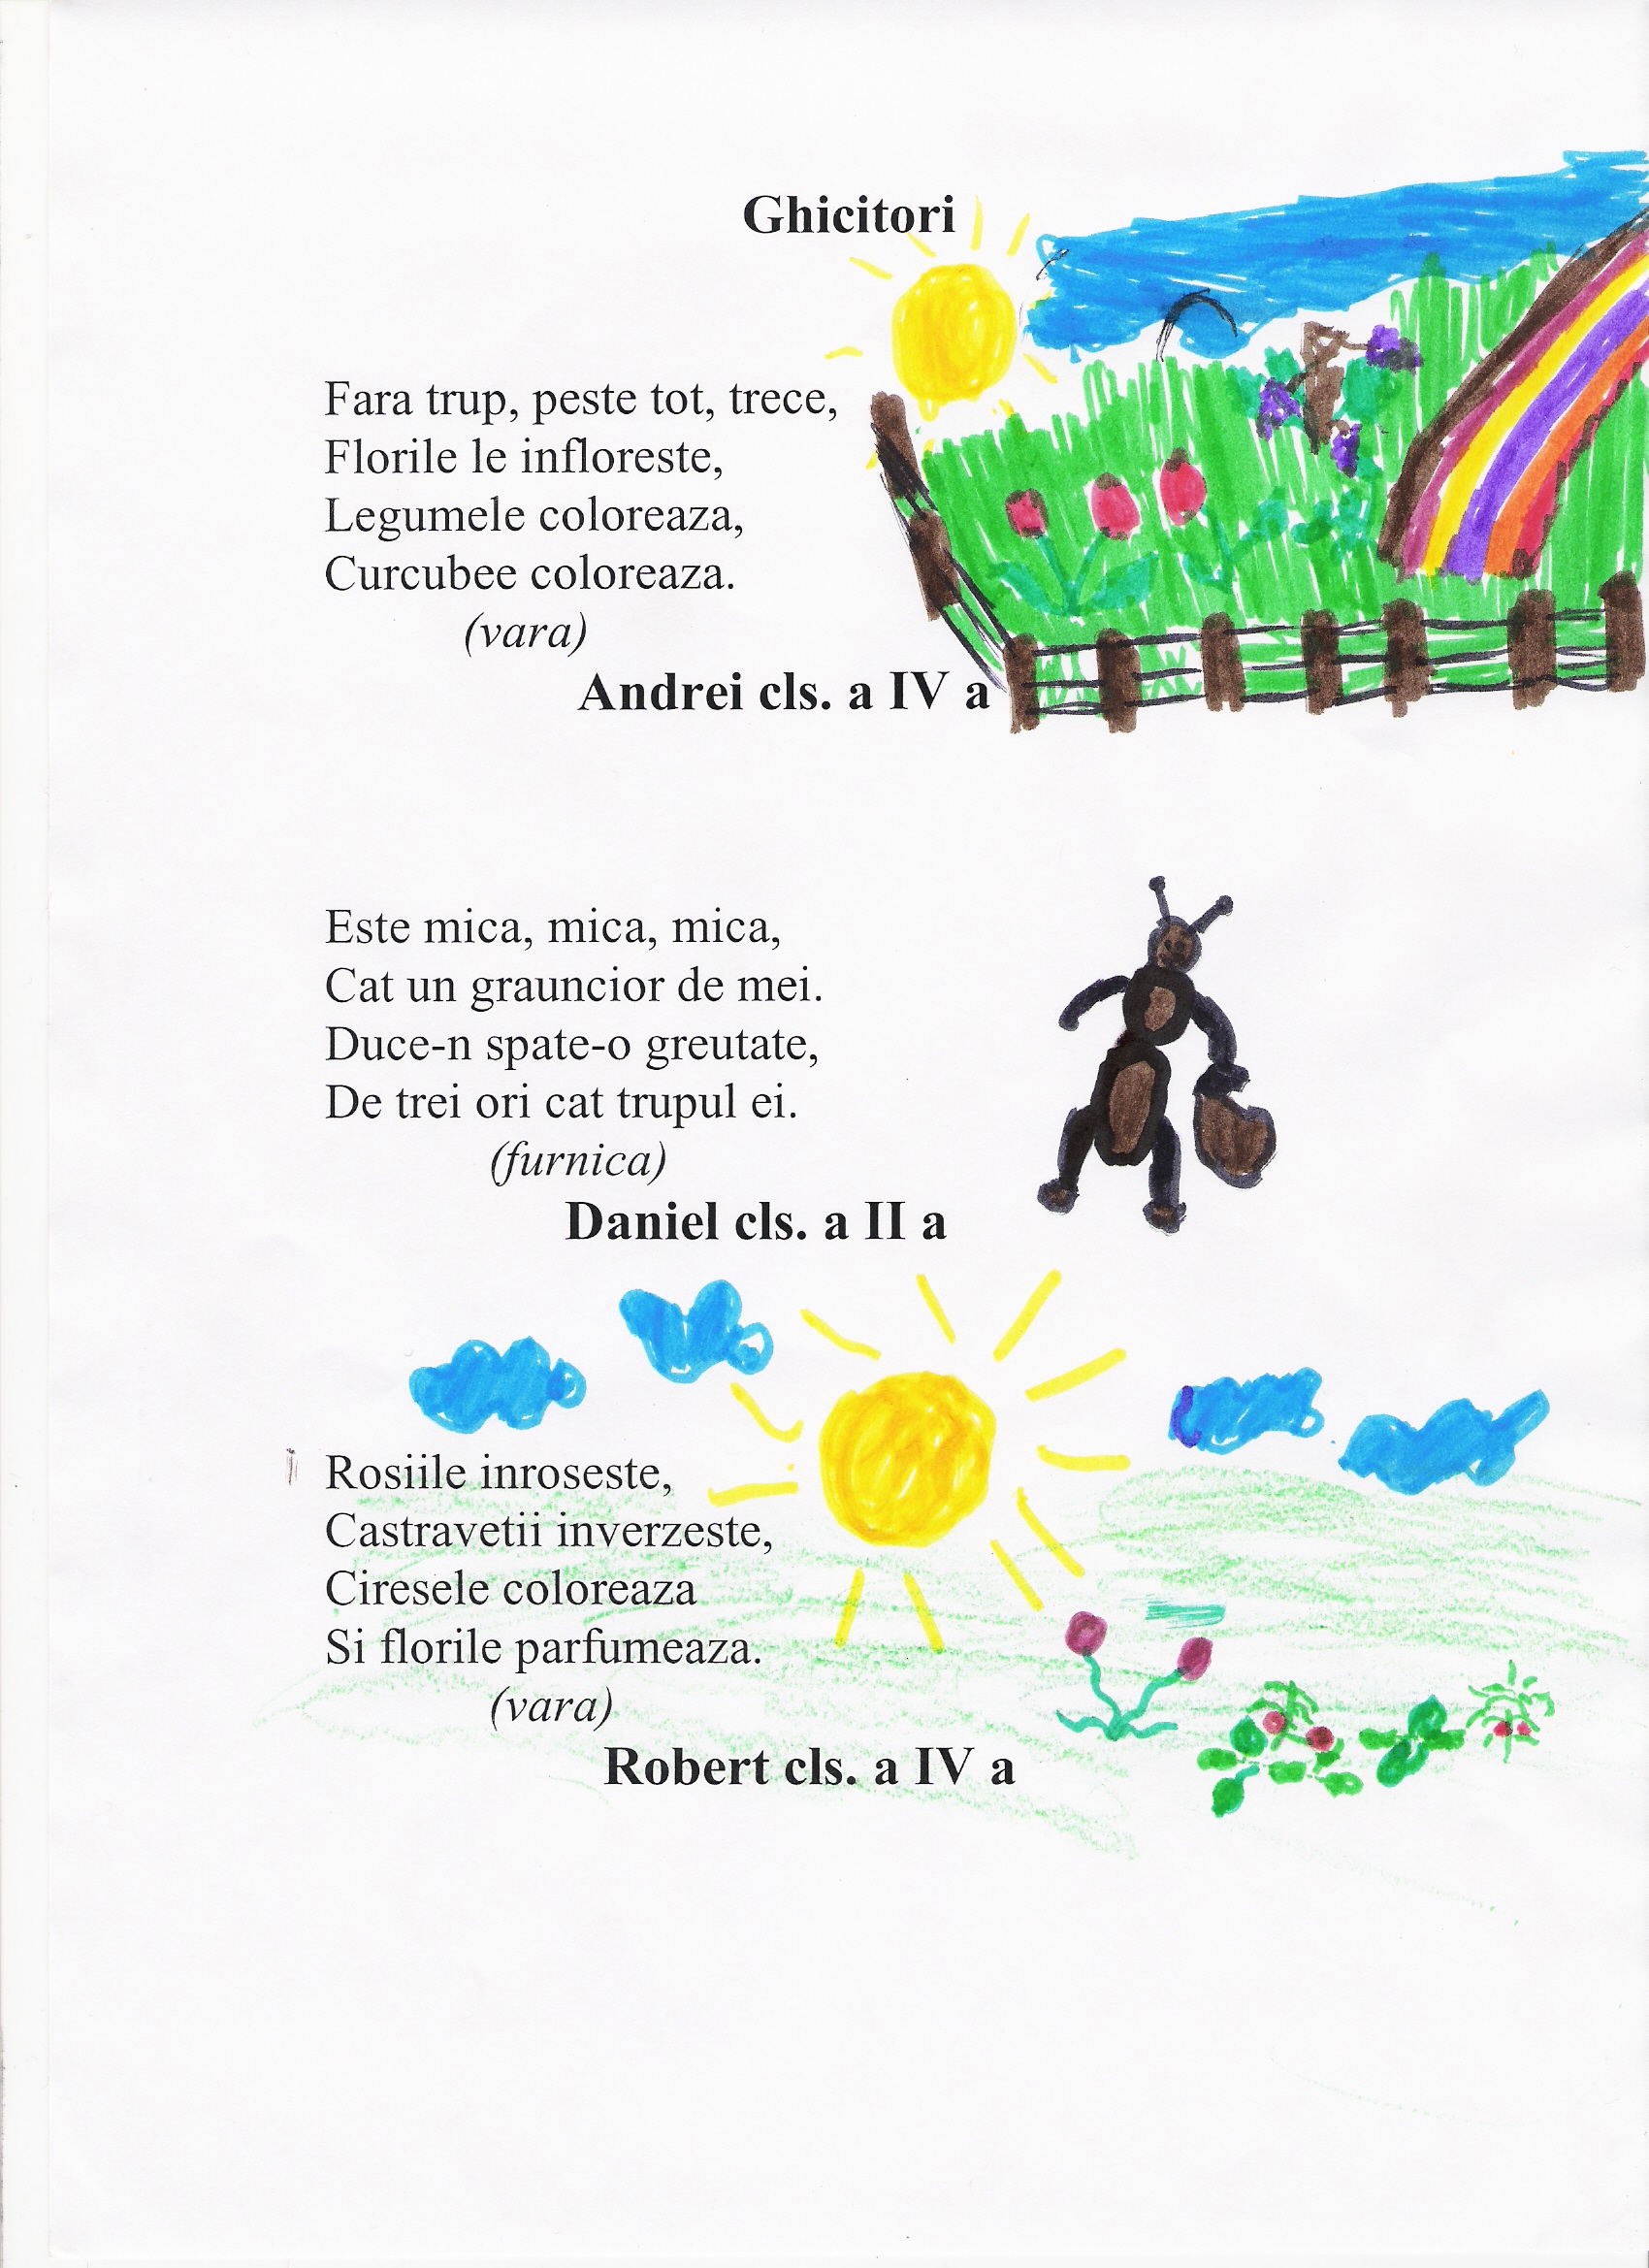 Ghicitori
Fara trup, peste tot, trece,
Florile le infloreste,
Legumele coloreaza,
Curcubee coloreaza.
(vara)
Andrei cls. a IV a
Este mica, mica, mica,
Cat un grauncior de mei.
Duce-n spate-o greutate,
De trei ori cat trupul ei.
(furnica)
Daniel cls. a II a
Rosiile inroseste,
Castravetii inverzeste,
Ciresele coloreaza
Si florile parfumeaza.
(vara)
Robert cls. a IV a